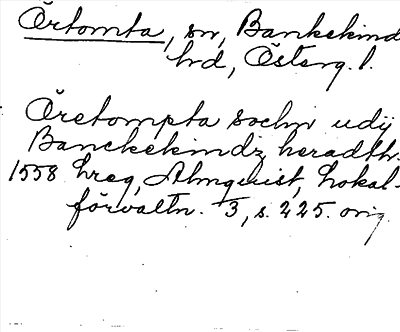 Örtomta, sn, Bankekind
hd, Österg. l.
Öretompta sochn udij
Banckekindz heradth.
1558 hreg, Almquist, Lokal-
förvaltn. 3, s. 225. orig.